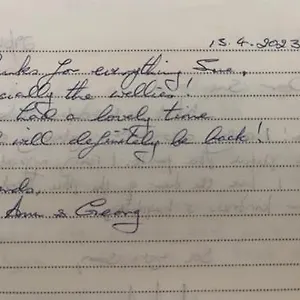 15.4.2023
for everything Sue,
the wellies!
had a lovely time
will definitely be back!
Ann & Georg